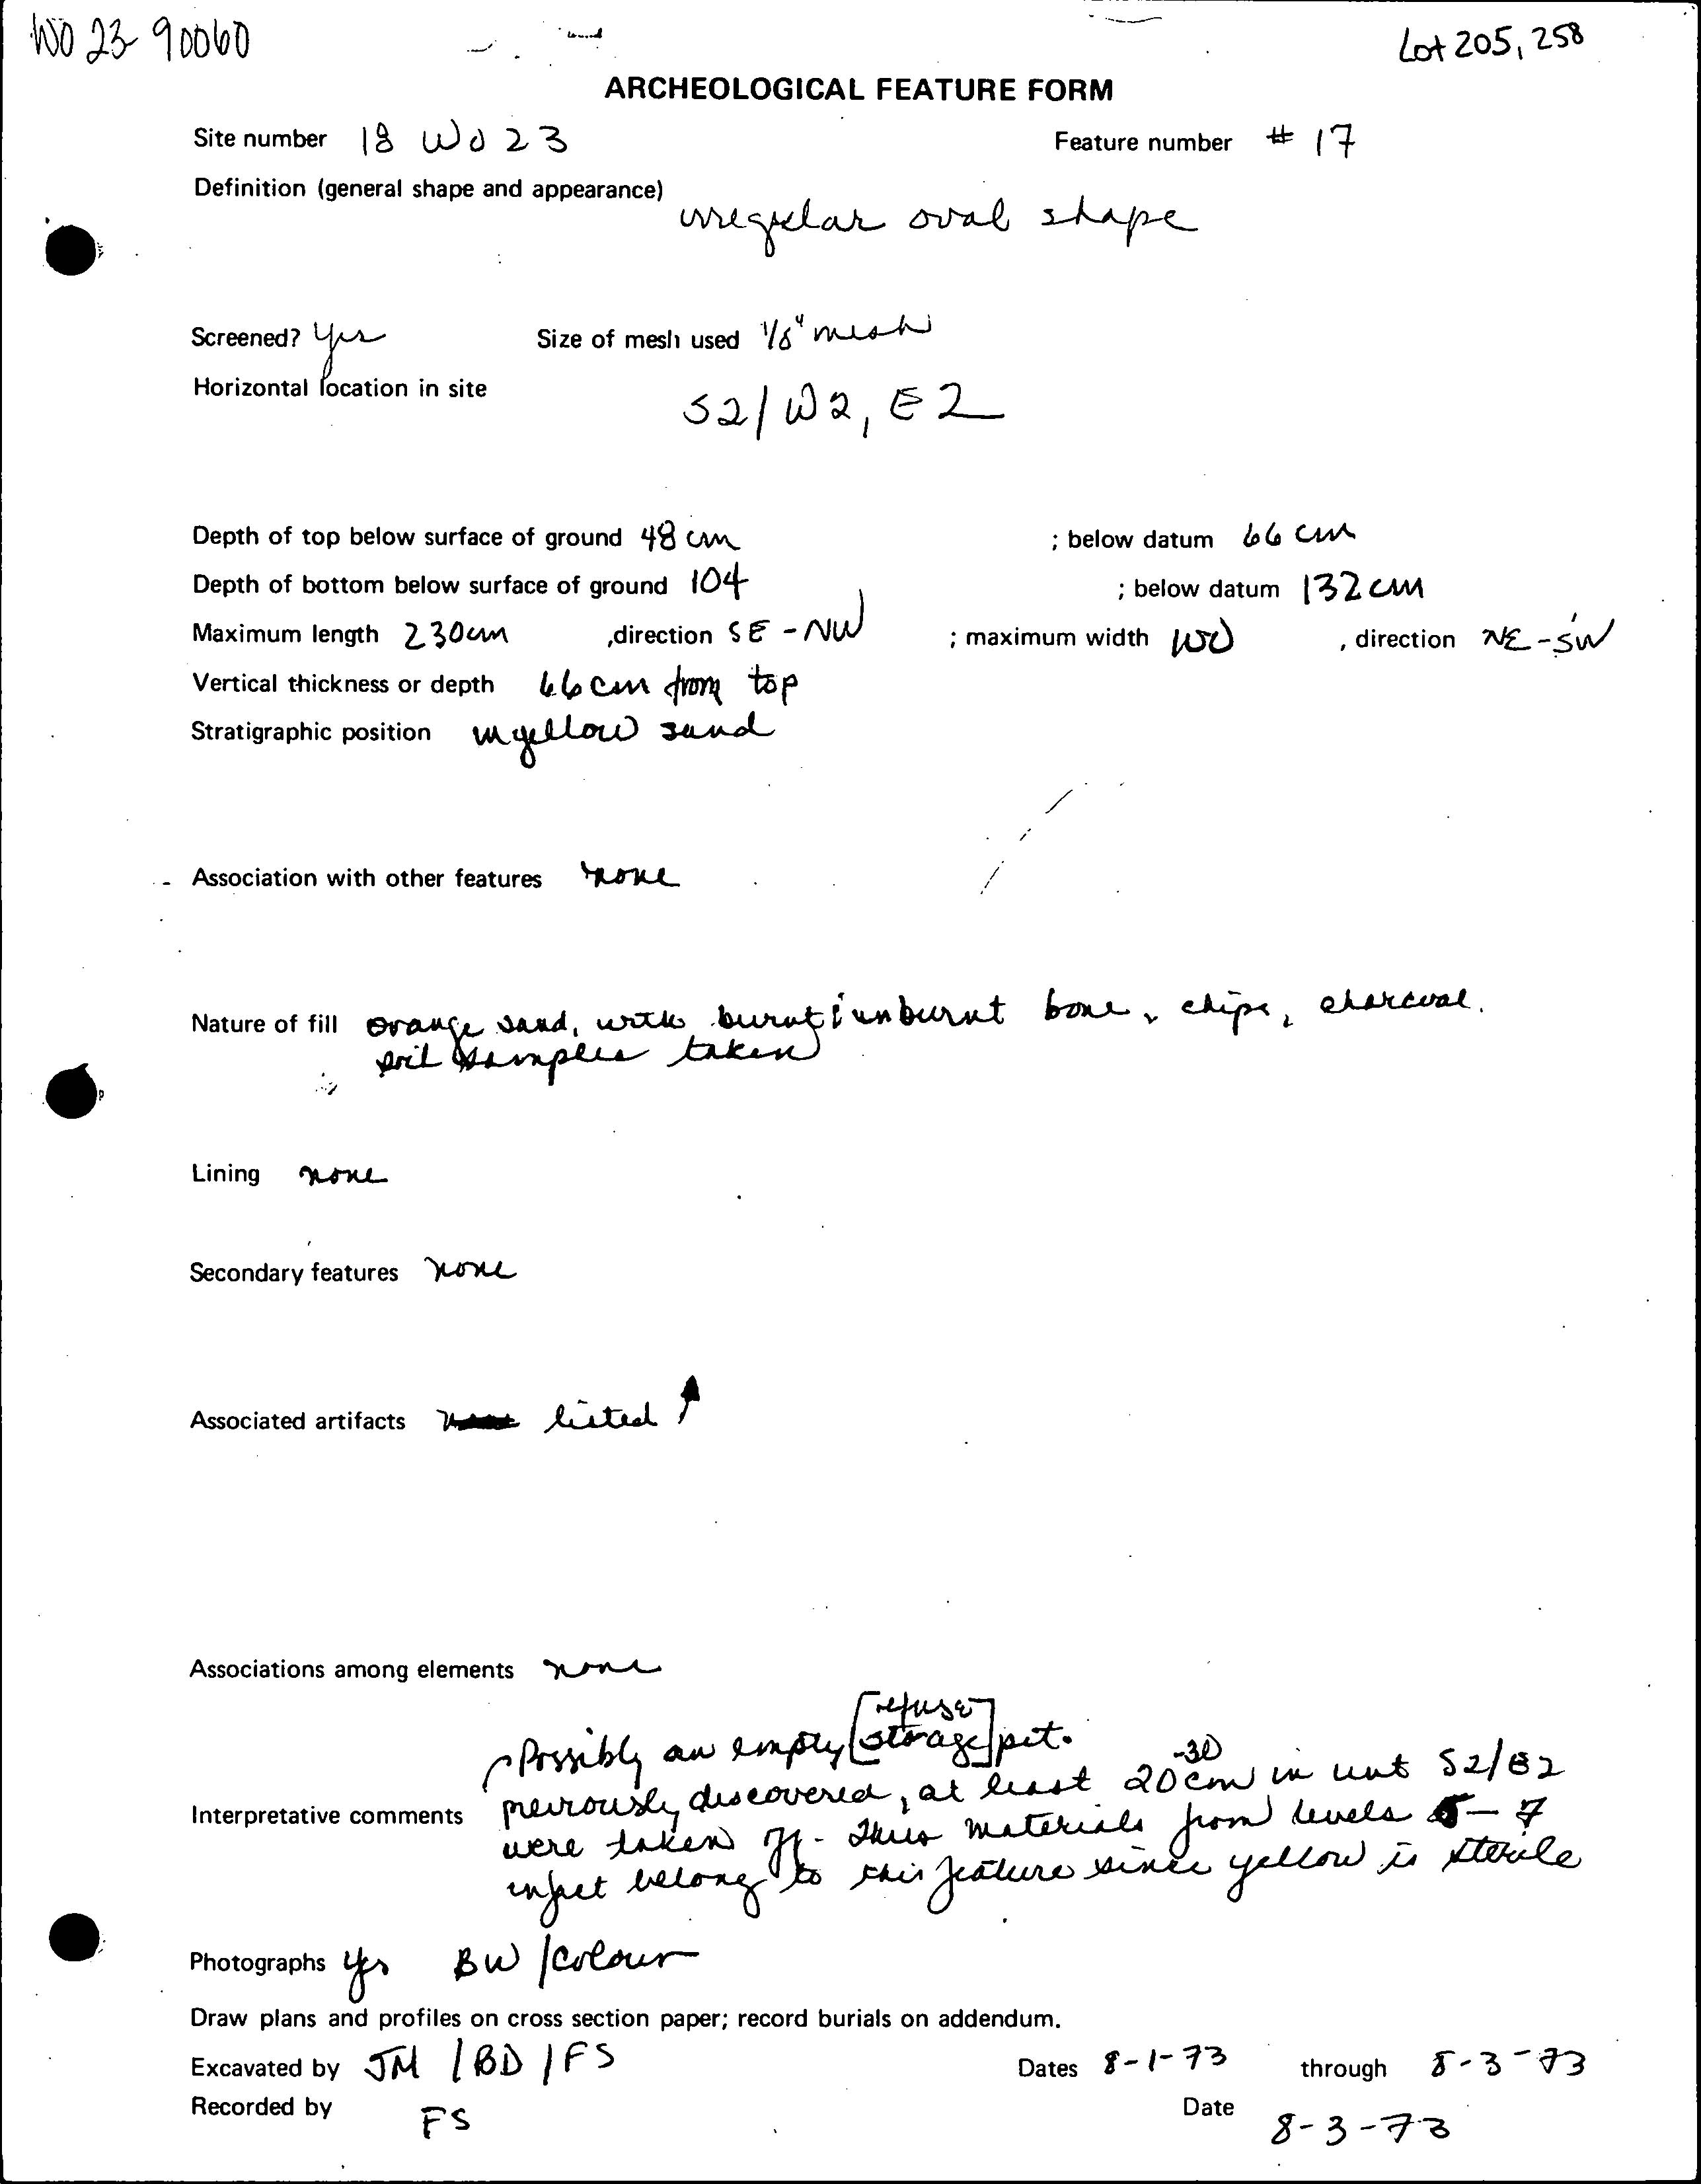 WO 23 90060
Lot 205, 258
ARCHEOLOGICAL FEATURE FORM
Site number 18 WO 23 Feature number # 17
Definition (general shape and appearance) irregular oval shape
Screened? Yes Size of mesh used 1/8" mesh
Horizontal location in site S2/W2, E2
Depth of top below surface of ground 48 cm ; below datum 66 cm
Depth of bottom below surface of ground 104 ; below datum 132 cm
Maximum length 230cm ,direction SE - NW ; maximum width , direction NE - SW
Vertical thickness or depth 66 cm from top
Stratigraphic position in yellow sand
Association with other features none
Nature of fill orange sand, with burnt & unburnt bone, chips, charcoal.
soil samples taken
Lining none
Secondary features none
Associated artifacts listed ↑
Associations among elements none
[refuse]
Possibly an empty [storage] pit.
-30
Interpretative comments previously discovered, at least 20 cm in unit S2/E2
were taken off - Thus materials from levels 5 - 7
infact belong to this feature since yellow is sterile
Photographs Yes BW / Colour
Draw plans and profiles on cross section paper; record burials on addendum.
Excavated by JM / BD / FS Dates 8-1-73 through 8-3-73
Recorded by FS Date 8-3-73